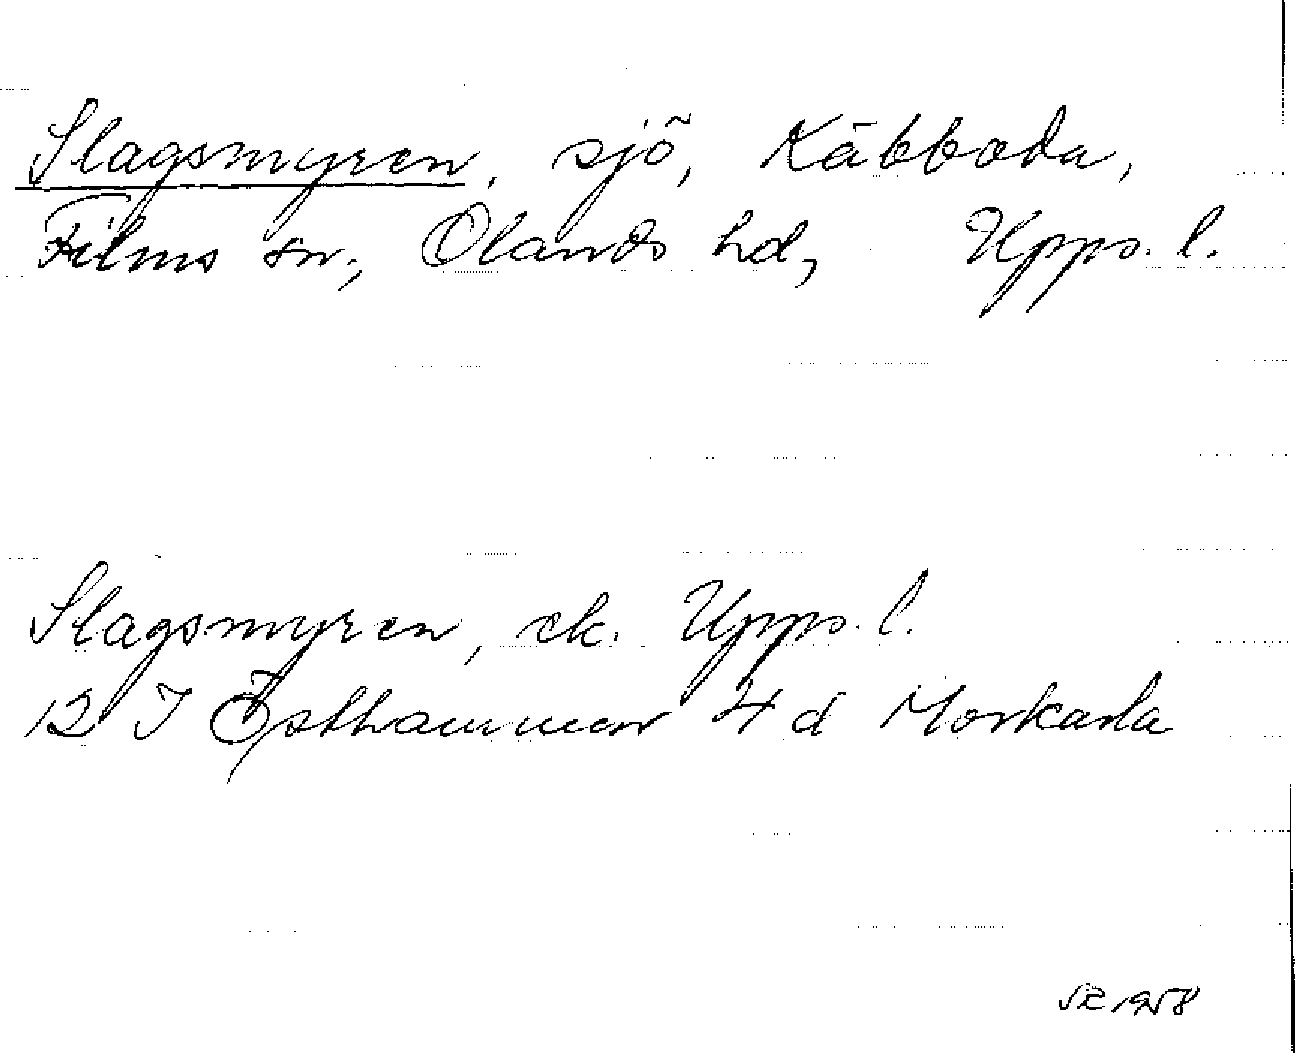 Slagsmyren, sjö, Käbboda,
Films sn., Olands hd, Upps. l.
Slagsmyren, ek. Upps. l.
12 I Östhammar 4 d Morkarla
1958